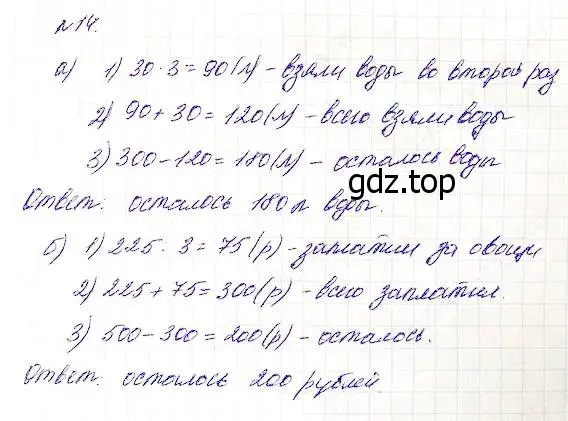 №14.
а) 1) 30 · 3 = 90 (л) - взяли воды во второй раз
2) 90 + 30 = 120 (л) - всего взяли воды
3) 300 - 120 = 180 (л) - осталось воды
gdz.top
Ответ: осталось 180 л воды.
б) 1) 225 : 3 = 75 (р) - заплатили за овощи
2) 225 + 75 = 300 (р) - всего заплатил.
3) 500 - 300 = 200 (р) - осталось.
Ответ: осталось 200 рублей.